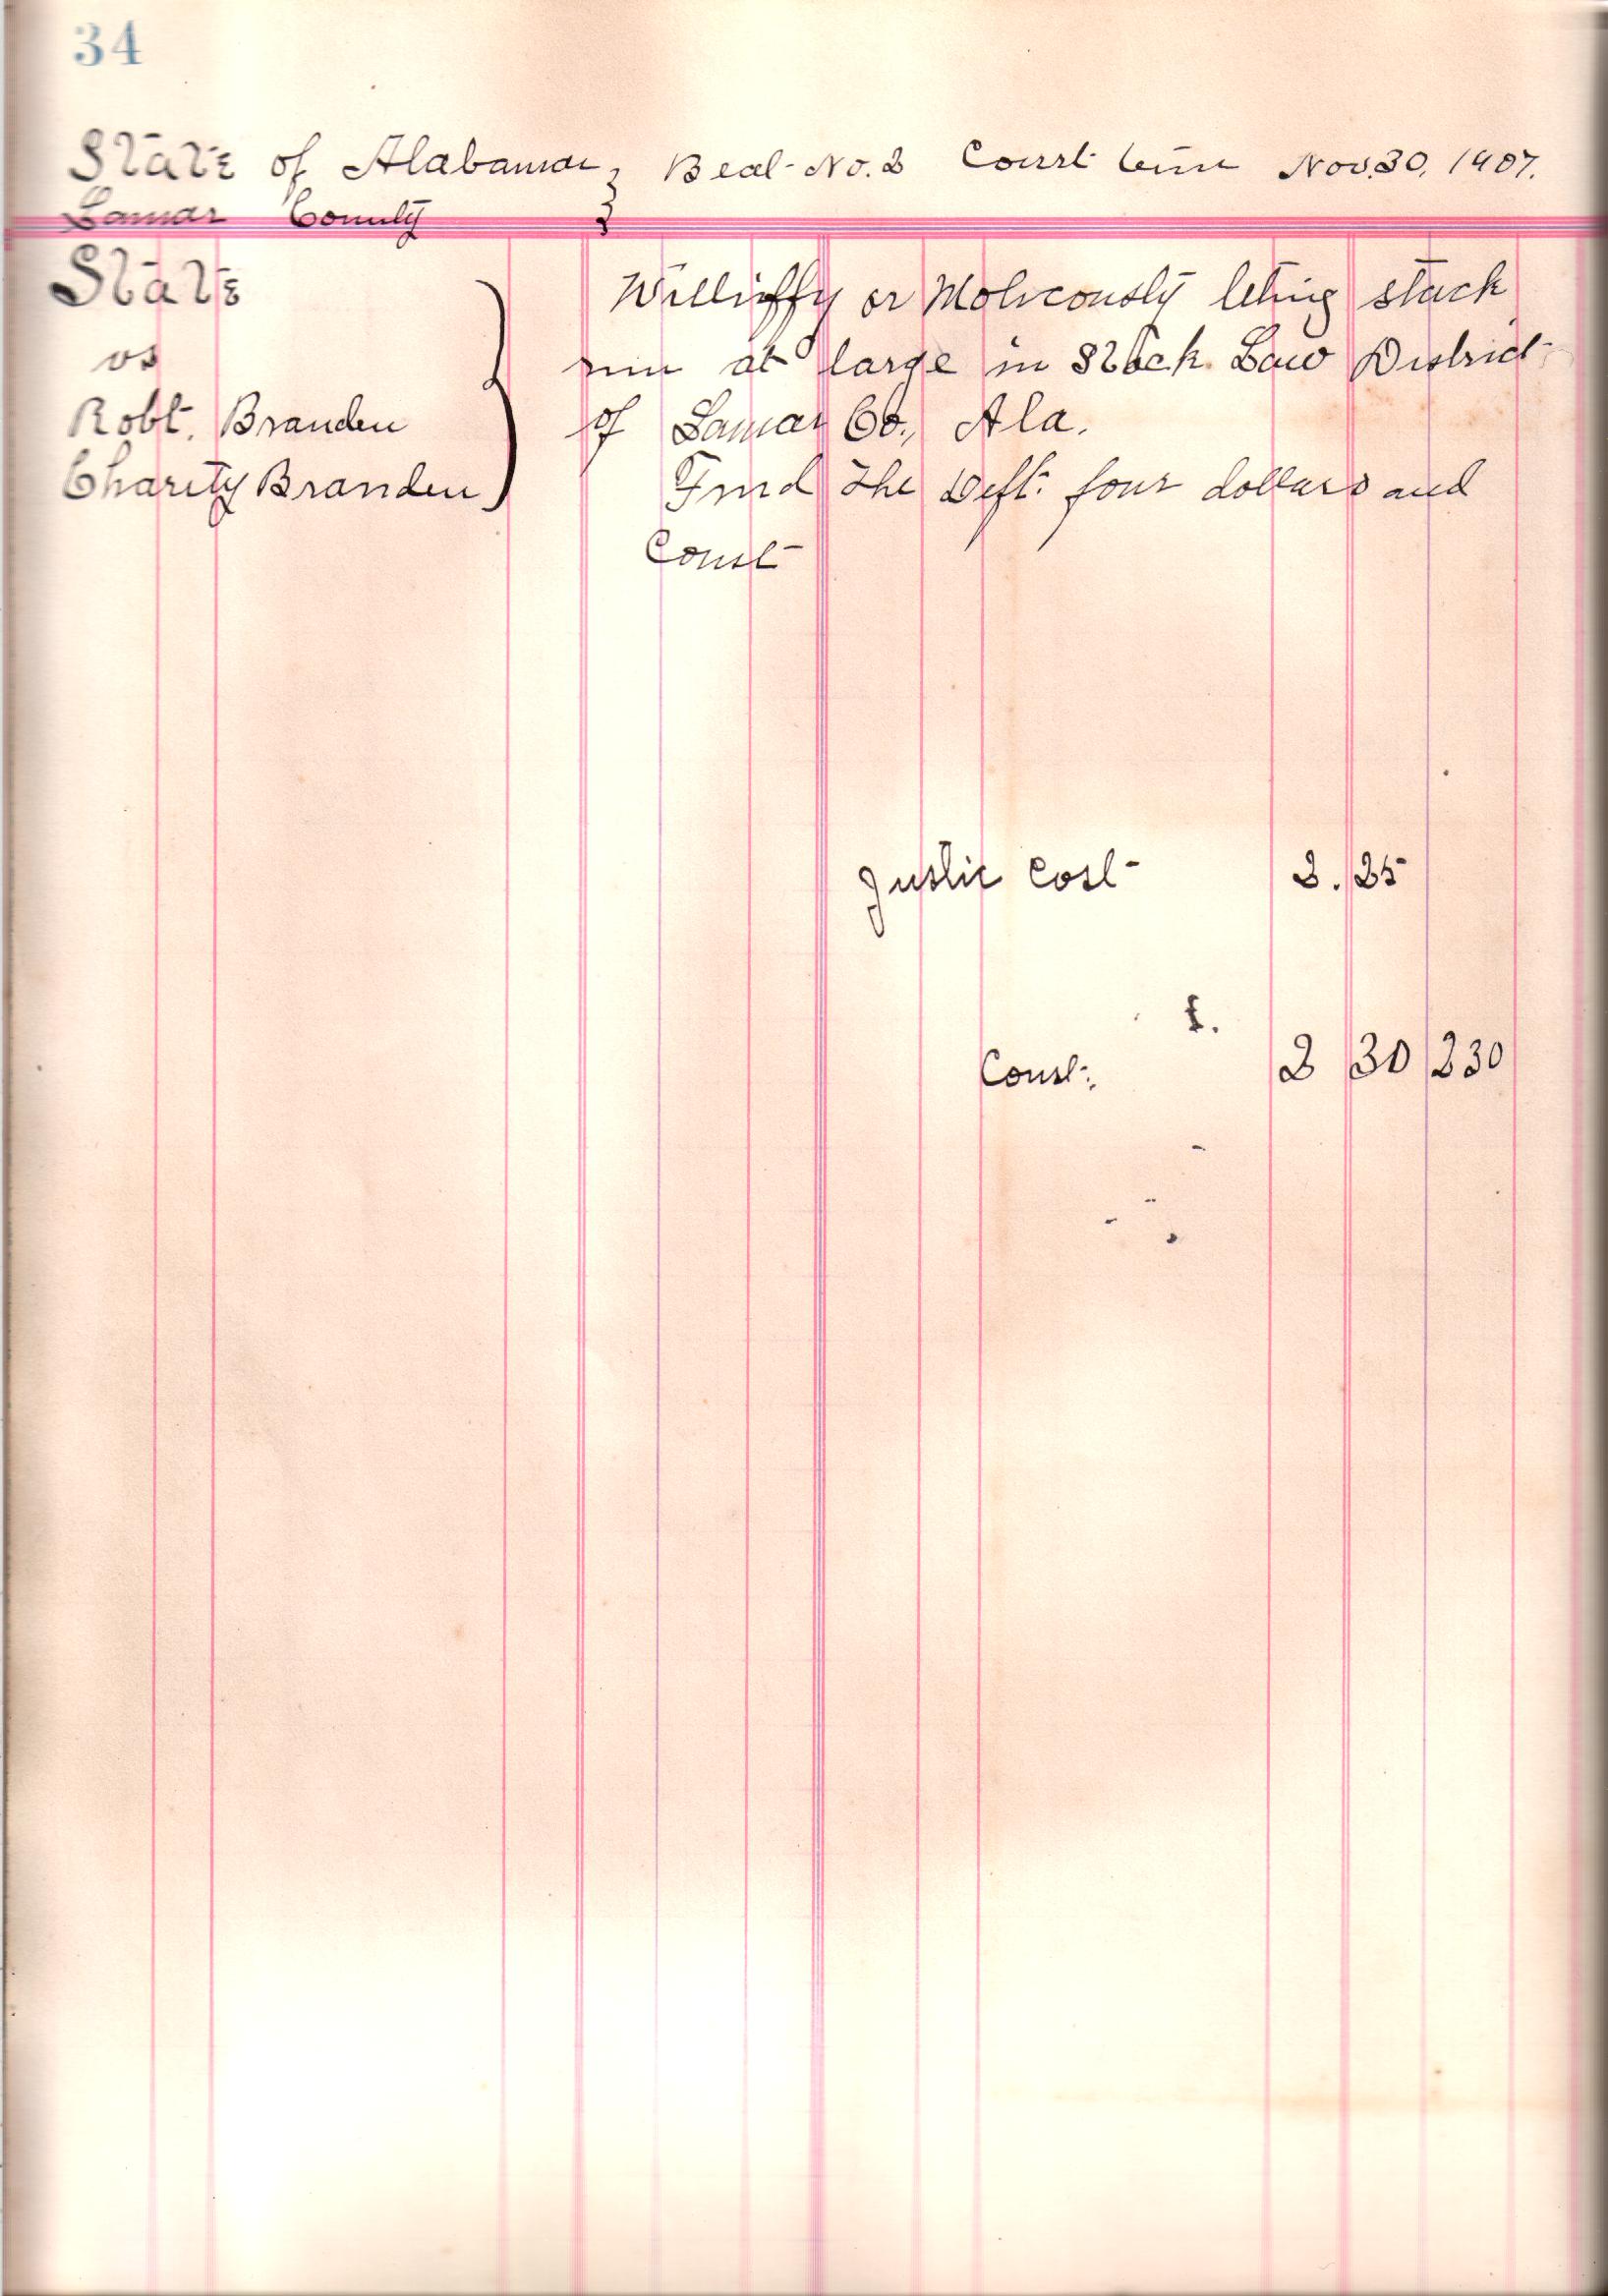 34
State of Alabama } Beat No. 2 Court term Nov. 30, 1907.
Lamar County }
State
vs
Robt. Branden
Charity Branden
Willinffy or Molicously leting stock
run at large in Stock Law District
of Lamar Co., Ala.
Find The Deft. four dollars and
Const
Justic Cost 2.25
Const. 2 30 230